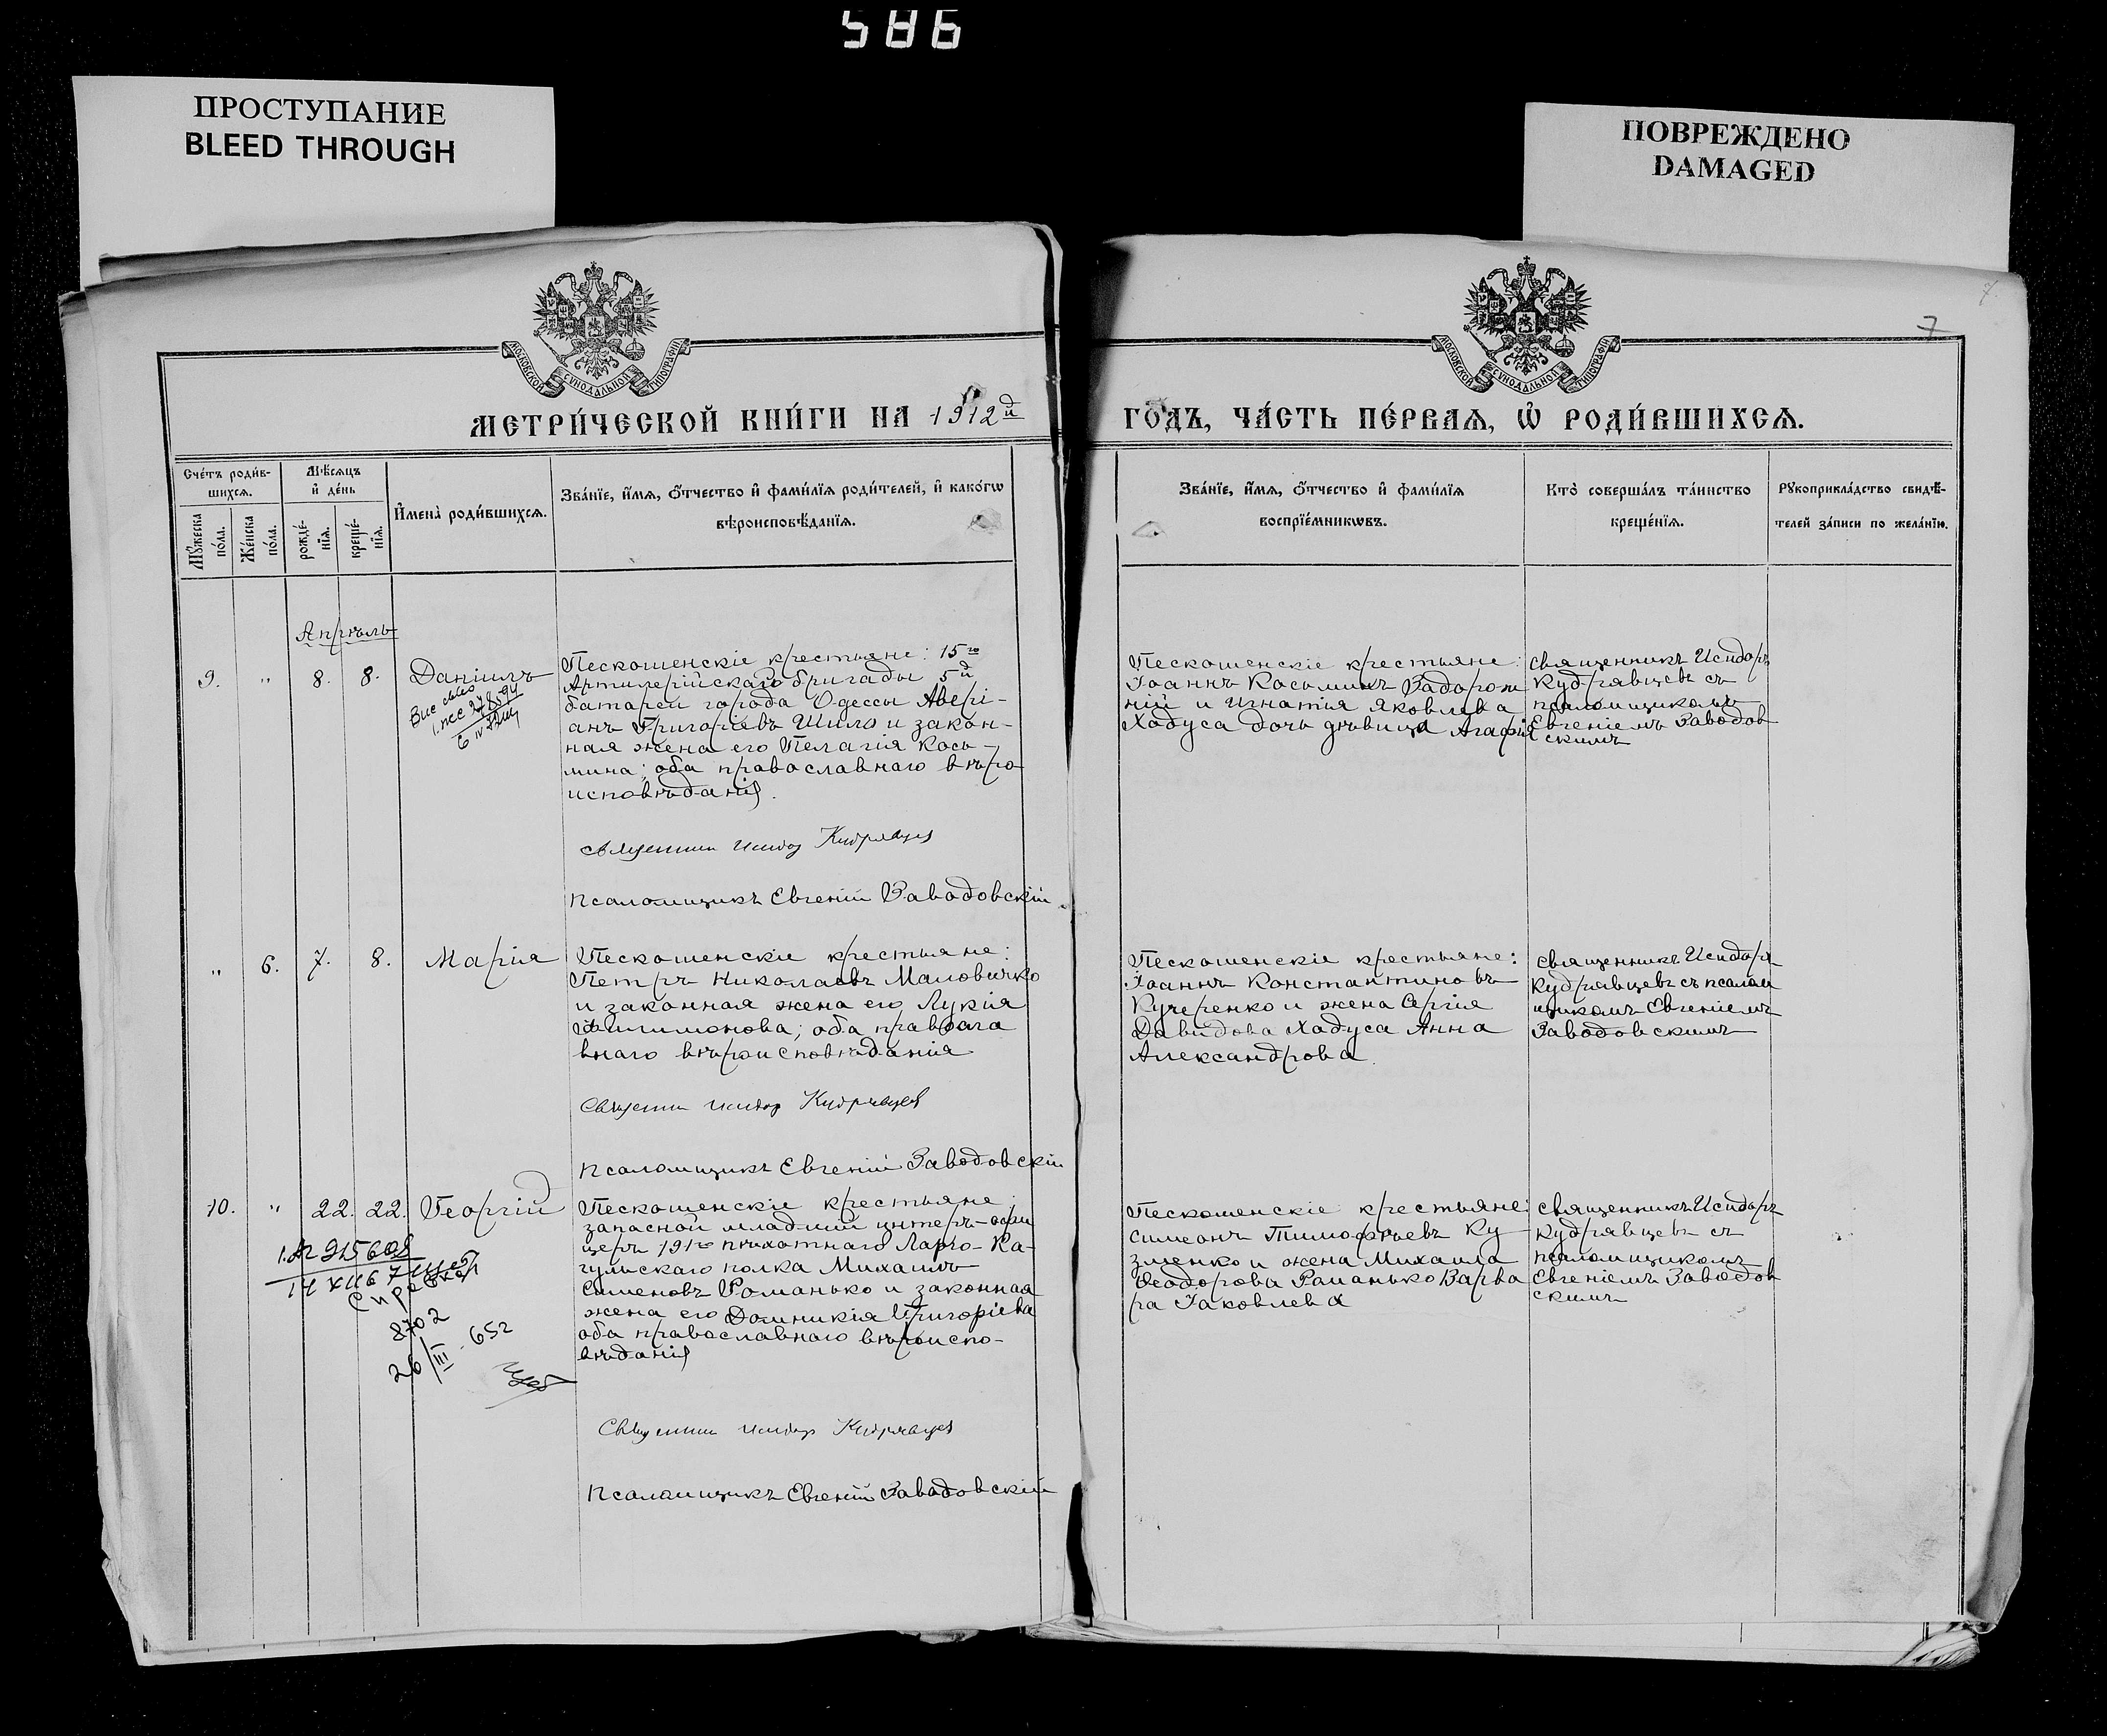 586
ПРОСТУПАНИЕ
BLEED THROUGH
ПОВРЕЖДЕНО
DAMAGED
7
7
МОСКОВСКОЙ СѴНОДАЛЬНОЙ ТИПОГРАФІИ
МОСКОВСКОЙ СѴНОДАЛЬНОЙ ТИПОГРАФІИ
МЕТРИ́ЧЕСКОЙ КНИ́ГИ НА 1912й
ГО́ДЪ, ЧА́СТЬ ПЕ́РВАѦ, Ѡ҆ РОДИ́ВШИХСѦ.
Сче́тъ роди́в-
шихсѧ.
Мѣ́сѧцъ
и҆ де́нь
Мꙋ́жеска по́ла.
Же́нска по́ла.
рожде́-
нїѧ.
креще́-
нїѧ.
И҆мена̀ роди́вшихсѧ.
Зва́нїе, и҆́мѧ, ѻ҆́тчество и҆ фами́лїѧ роди́телей, и҆ како́гѡ
вѣроисповѣ́данїѧ.
Зва́нїе, и҆́мѧ, ѻ҆́тчество и҆ фами́лїѧ
воспрїе́мникѡвъ.
Кто̀ соверша́лъ та́инство
креще́нїѧ.
Рꙋкоприкла́дство свидѣ́-
телей за́писи по жела́нїю.
Апрѣль
9. " 8. 8. Даніилъ
6 IV
Пескошенскіе крестьяне: 15го
Артилерійскаго бригады 5й
батареи города Одессы Авері-
анъ Григорьевъ Шило и закон-
ная жена его Пелагія Кось-
мина; оба православнаго вѣро
исповѣданія.
Священник Исидор Кудрявцев
Псаломщикъ Евгеній Заводовскій
Пескошенскіе крестьяне:
Іоаннъ Косьминъ Задорож
ній и Игнатія Яковлева
Ходуса дочь дѣвица Агафія
Священникъ Исидоръ
Кудрявцевъ съ
псаломщикомъ
Евгеніемъ Заводов
скимъ
" 6. 7. 8. Марія
Пескошенскіе крестьяне:
Петръ Николаевъ Маловичко
и законная жена его Лукія
Филимонова; оба правосла
внаго вѣроисповѣданія
Священник Исидор Кудрявцев
Псаломщикъ Евгеній Заводовскій
Пескошенскіе крестьяне:
Іоаннъ Константиновъ
Кучеренко и жена Сергія
Давидова Ходуса Анна
Александрова.
Священникъ Исидоръ
Кудрявцевъ съ псалом
щикомъ Евгеніемъ
Заводовскимъ
10. " 22. 22. Георгій
8702
26/III - 652
Пескошенскіе крестьяне:
запасной младшій унтеръ-офи
церъ 191го пѣхотнаго Ларго-Ка-
гульскаго полка Михаилъ
Симеоновъ Романько и законная
жена его Домникія Григоріева
оба православнаго вѣроиспо-
вѣданія
Священник Исидор Кудрявцев
Псаломщикъ Евгеній Заводовскій
Пескошенскіе крестьяне:
Симеонъ Тимофѣевъ Ку
зменко и жена Михаила
Ѳеодорова Романько Варва
ра Іаковлева
Священникъ Исидоръ
Кудрявцевъ съ
псаломщикомъ
Евгеніемъ Заводов
скимъ